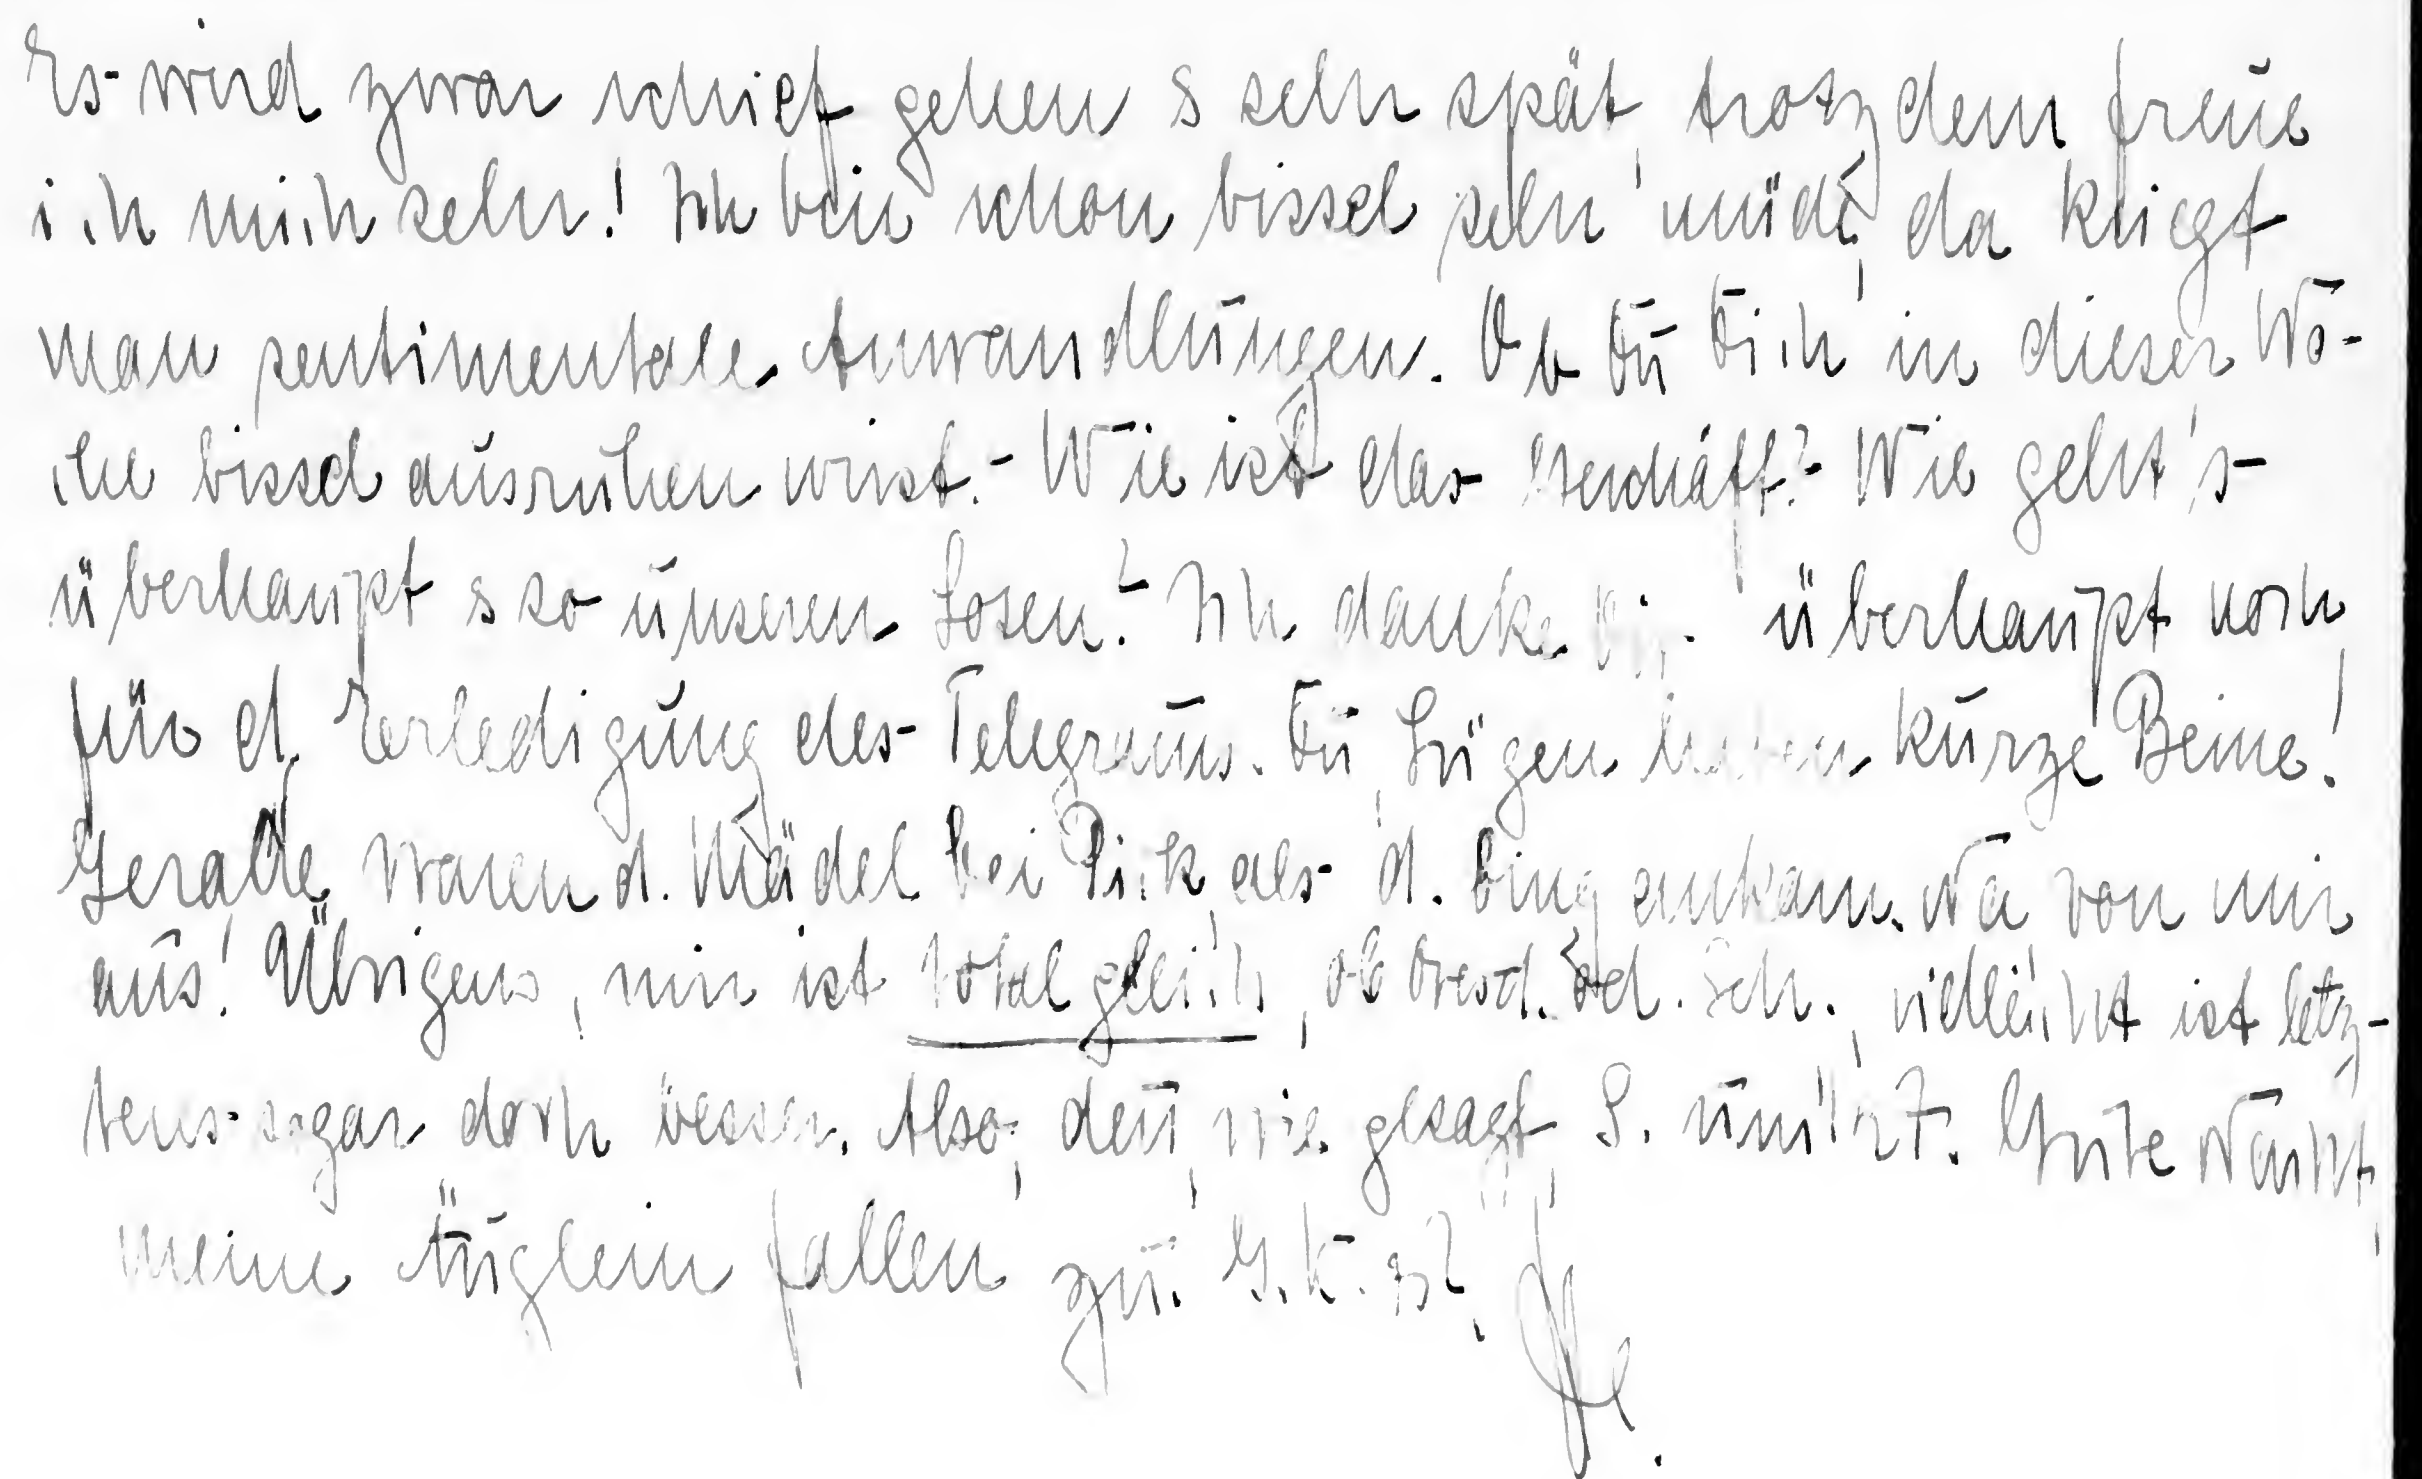 Es wird zwar schief gehen s sehr spät, trotzdem freue
ich mich sehr! Ich bin schon bissel sehr müde, da kriegt
man sentimentale Anwandlungen. Ob Du Dich in dieser Wo-
che bissel ausruhen wirst.- Wie ist das Geschäft?- Wie geht's
überhaupt s so unseren Losen? Ich danke Dir überhaupt noch
für d. Erledigung des Telegrams. Du, Lügen haben kurze Beine!
Gerade waren d. Mädel bei Pick als d. ankam. Na von mir
aus! Übrigens, mir ist total gleich, ob Dresd. od. Sch., vielleicht ist letz-
tens sogar doch besser. Also, wie gesagt, S. um 1/2 7. Gute Nacht,
meine Äuglein fallen zu. G. K.